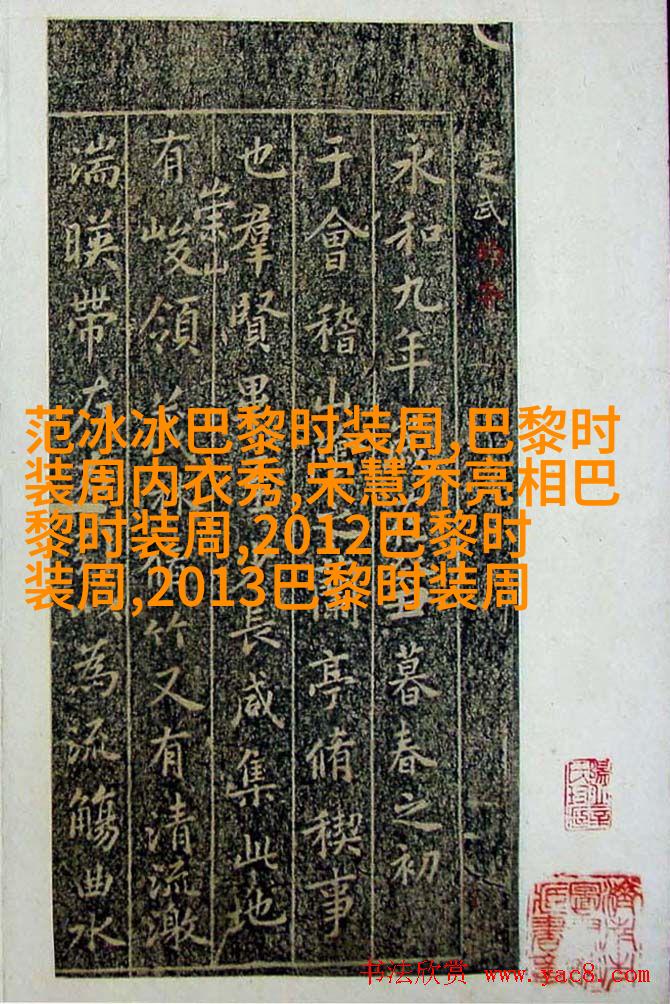 定武
永和九年丑暮春之初
于會稽山亭脩稧事
也羣賢畢長咸集此地
有崇山峻領竹又有清流激
湍暎帶左為流觴曲水
范冰冰巴黎时装周,巴黎时
装周内衣秀,宋慧乔亮相巴
黎时装周,2012巴黎时
装周,2013巴黎时装周
书法欣赏 www.yac8.com